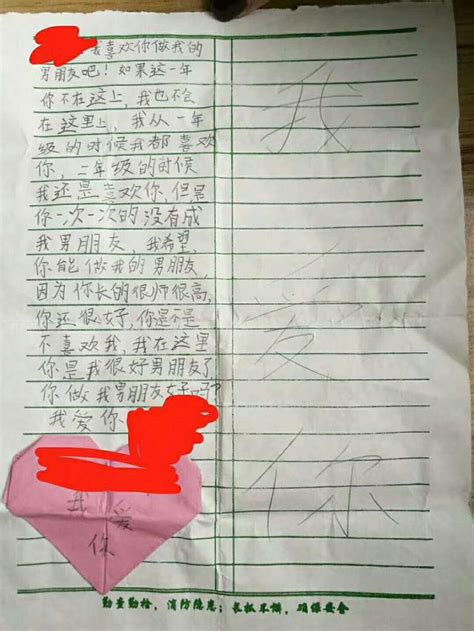 我喜欢你做我的
男朋友吧！如果这一年
你不在这上，我也不会
在这里上，我从一年
级的时候我都喜欢
你，二年级的时候
我还是喜欢你，但是
你一次一次的没有成
我男朋友，我希望，
你能做我的男朋友，
因为你长的很师很高，
你还很好，你是不是
不喜欢我，我在这里
你是我很好男朋友了
你做我男朋友好吗？
我爱你
我
爱
你
我
爱
你
勤查勤检，消防隐患；长抓不懈，确保安全